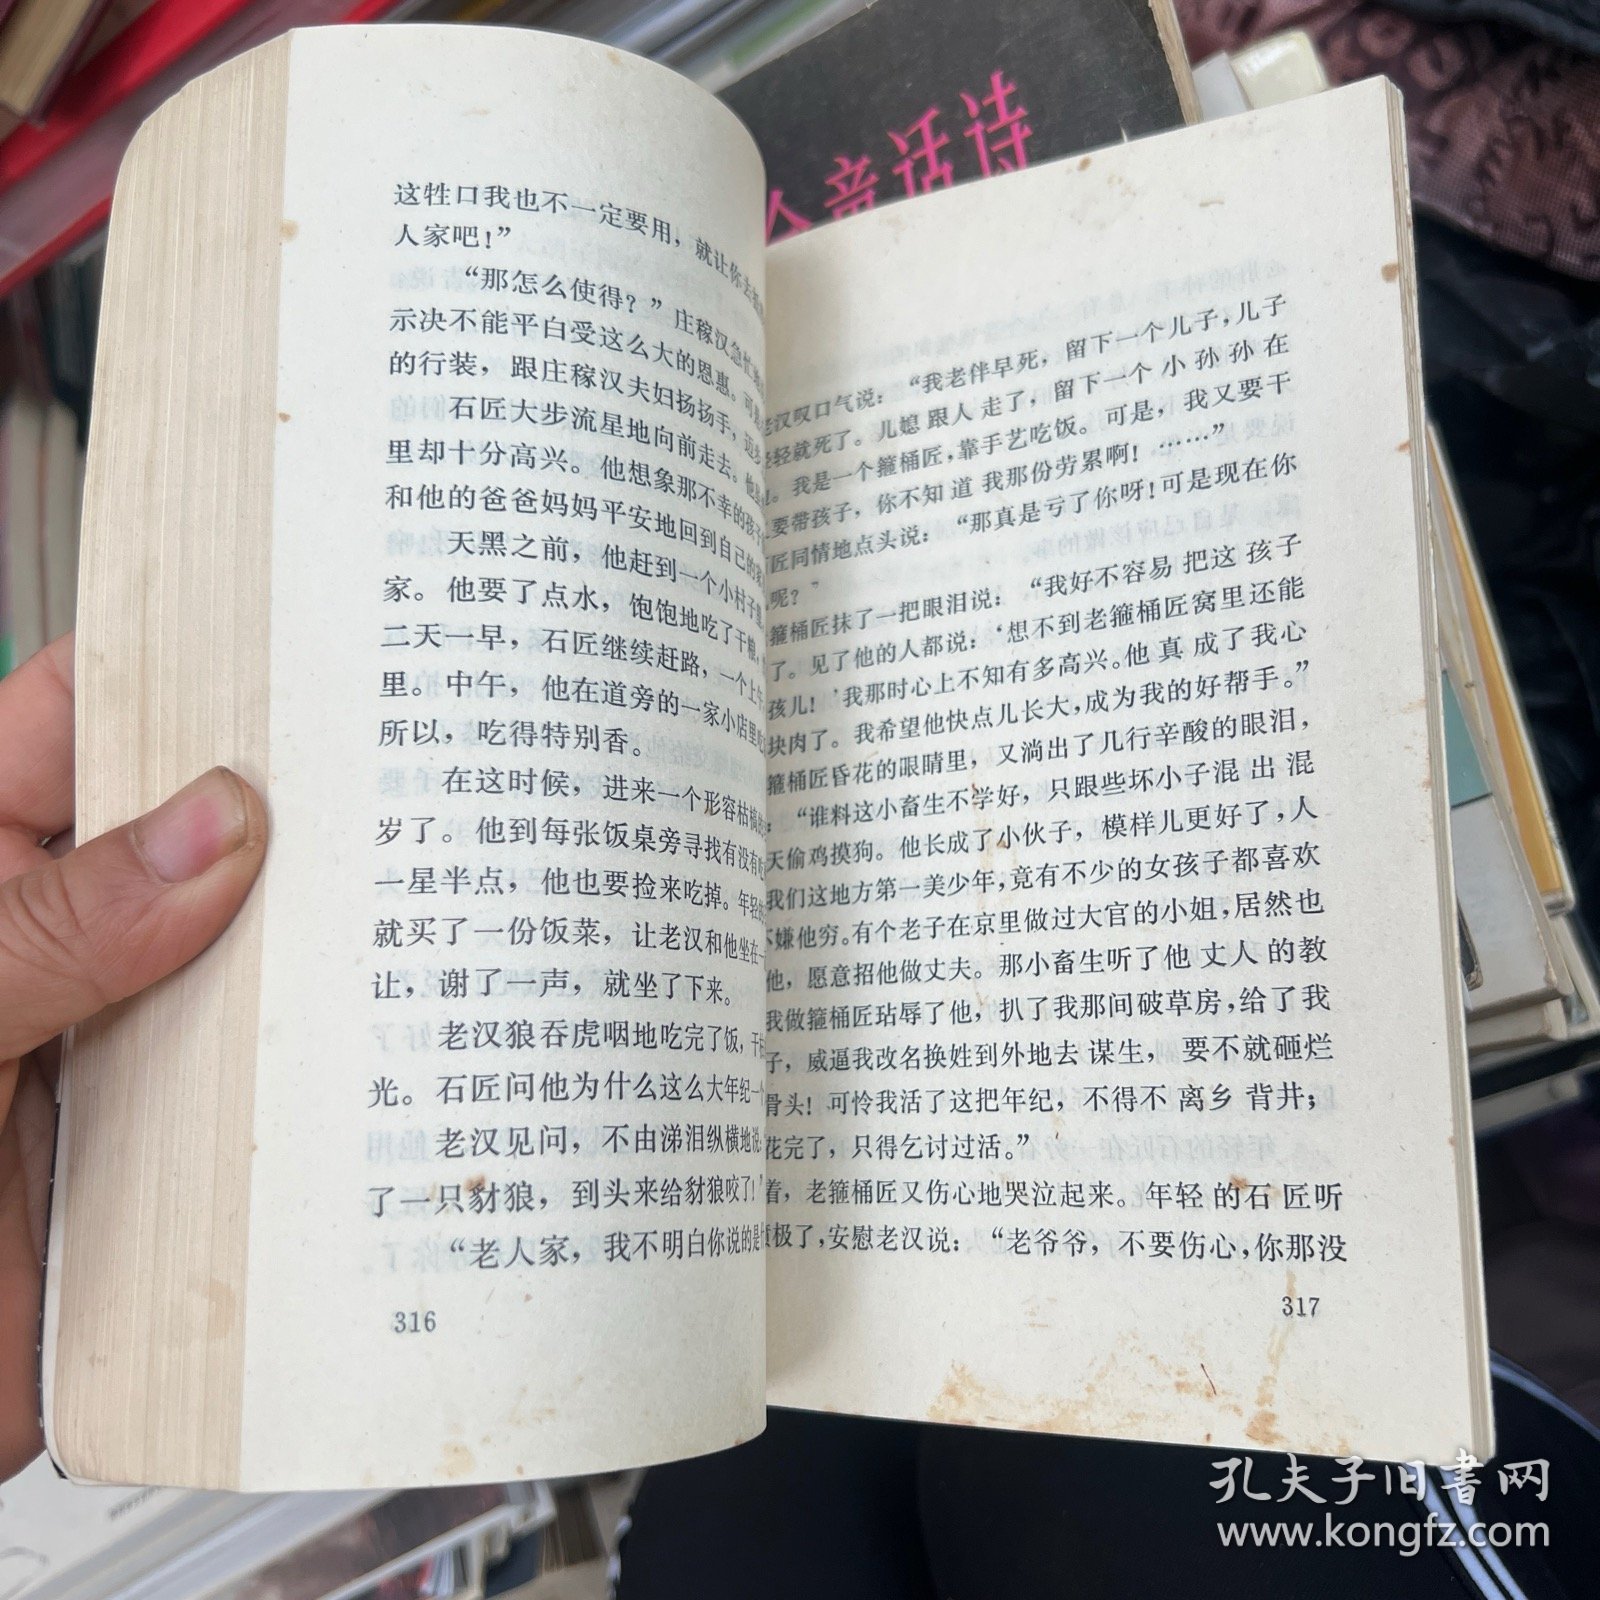 人童话诗
这牲口我也不一定要用，就让你去
人家吧！”
“那怎么使得？”庄稼汉急忙
示决不能平白受这么大的恩惠。可
的行装，跟庄稼汉夫妇扬扬手，迈
石匠大步流星地向前走去。他
里却十分高兴。他想象那不幸的孩子
和他的爸爸妈妈平安地回到自己的家
天黑之前，他赶到一个小村子里
家。他要了点水，饱饱地吃了干粮，
二天一早，石匠继续赶路，一个上午
里。中午，他在道旁的一家小店里吃
所以，吃得特别香。
在这时候，进来一个形容枯槁的
岁了。他到每张饭桌旁寻找有没有吃
一星半点，他也要捡来吃掉。年轻的
就买了一份饭菜，让老汉和他坐在一
让，谢了一声，就坐了下来。
老汉狼吞虎咽地吃完了饭，干
光。石匠问他为什么这么大年纪一个
老汉见问，不由涕泪纵横地说：
了一只豺狼，到头来给豺狼咬了！”
“老人家，我不明白你说的是
316
老汉叹口气说：“我老伴早死，留下一个儿子，儿子
轻轻就死了。儿媳跟人走了，留下一个小孙孙在
。我是一个箍桶匠，靠手艺吃饭。可是，我又要干
要带孩子，你不知道我那份劳累啊！……”
匠同情地点头说：“那真是亏了你呀！可是现在你
呢？”
箍桶匠抹了一把眼泪说：“我好不容易把这孩子
了。见了他的人都说：‘想不到老箍桶匠窝里还能
孩儿！’我那时心上不知有多高兴。他真成了我心
块肉了。我希望他快点儿长大，成为我的好帮手。”
箍桶匠昏花的眼睛里，又淌出了几行辛酸的眼泪，
：“谁料这小畜生不学好，只跟些坏小子混出混
天偷鸡摸狗。他长成了小伙子，模样儿更好了，人
我们这地方第一美少年，竟有不少的女孩子都喜欢
不嫌他穷。有个老子在京里做过大官的小姐，居然也
他，愿意招他做丈夫。那小畜生听了他丈人的教
我做箍桶匠玷辱了他，扒了我那间破草房，给了我
子，威逼我改名换姓到外地去谋生，要不就砸烂
骨头！可怜我活了这把年纪，不得不离乡背井；
花完了，只得乞讨过活。”
着，老箍桶匠又伤心地哭泣起来。年轻的石匠听
极了，安慰老汉说：“老爷爷，不要伤心，你那没
317
孔夫子旧书网
www.kongfz.com